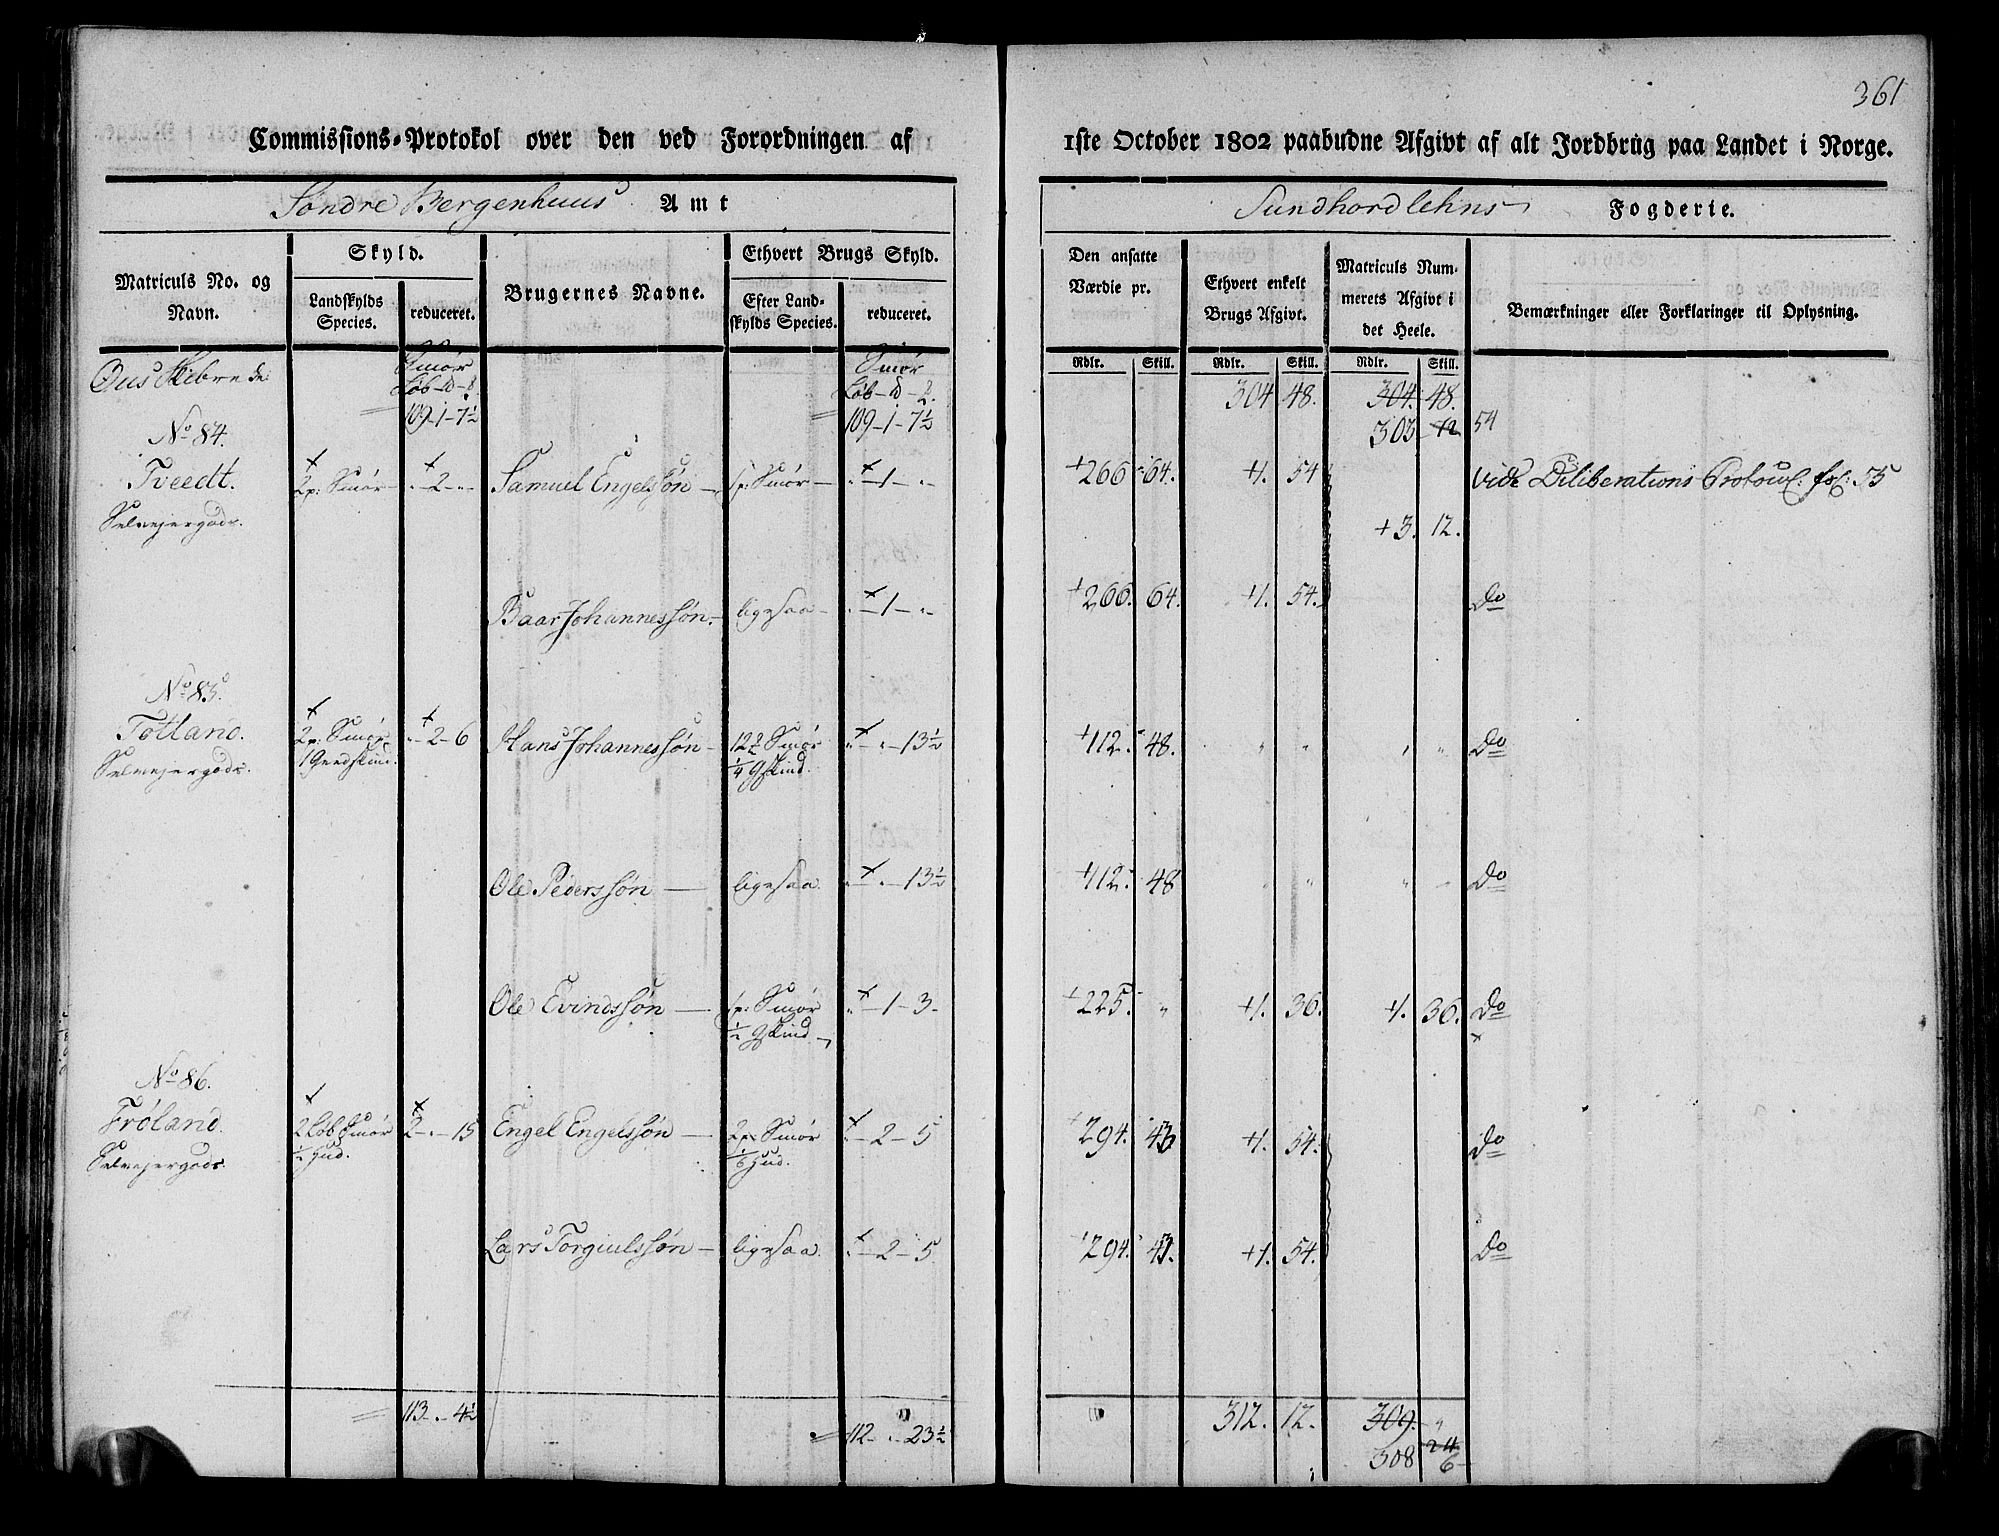 361
Commissions-Protokol over den ved Forordningen af 1ste October 1802 paabudne Afgivt af alt Jordbrug paa Landet i Norge.
Søndre Bergenhuus Amt Sundhordlehns Fogderie.
Matriculs No. og Navn. Skyld. Landskylds Species. reduceret. Brugernes Navne. Ethvert Brugs Skyld. Efter Landskylds Species. reduceret. Den ansatte Værdie pr. Ethvert enkelt Brugs Afgivt. Matriculs Nummerets Afgivt i det Heele. Bemærkninger eller Forklaringer til Oplysning.
Rdlr. Skill. Rdlr. Skill. Rdlr. Skill.
Ous Skibrede Smør Smør
Løb 109-1-7½ Løb 109-1-7½ 304 48. 304. 48.
303 12 54
No 84.
Tveedt. 2p: Smør - "-2-" Samuel Engelssøn 1p: Smør - "-1-" 266 64. 1. 54 vide Deliberations Protocol: fol: 35
Selveiergods. 3. 12.
Baar Johannessøn ligesaa "-1-" 266. 64. 1. 54. Do
No 85.
Totland. 2p: Smør "-2-6 Hans Johannessøn 12 Smør "-"-13½ 112. 48. " " " " Do
Selveiergods. 1 Geedskind. ¼ Gskind.
Ole Pederssøn ligesaa "-"-13½ 112. 48 " " " " Do
Ole Evindssøn 1p: Smør "-1-3. 225. " 1. 36. 1. 36. Do
½ Gskind
No 86.
Frøland. 2 Løb Smør 2-"-15 Engel Engelssøn 2p: Smør "-2-5 294. 1. 54. Do
Selveiergods ½ Hud. 1/6 Hud.
Lars Torgiulssøn ligesaa. "-2-5. 294. 1. 54. Do
113-"-4½ 112-"-23½ 312. 12. 309. "
308 24
6